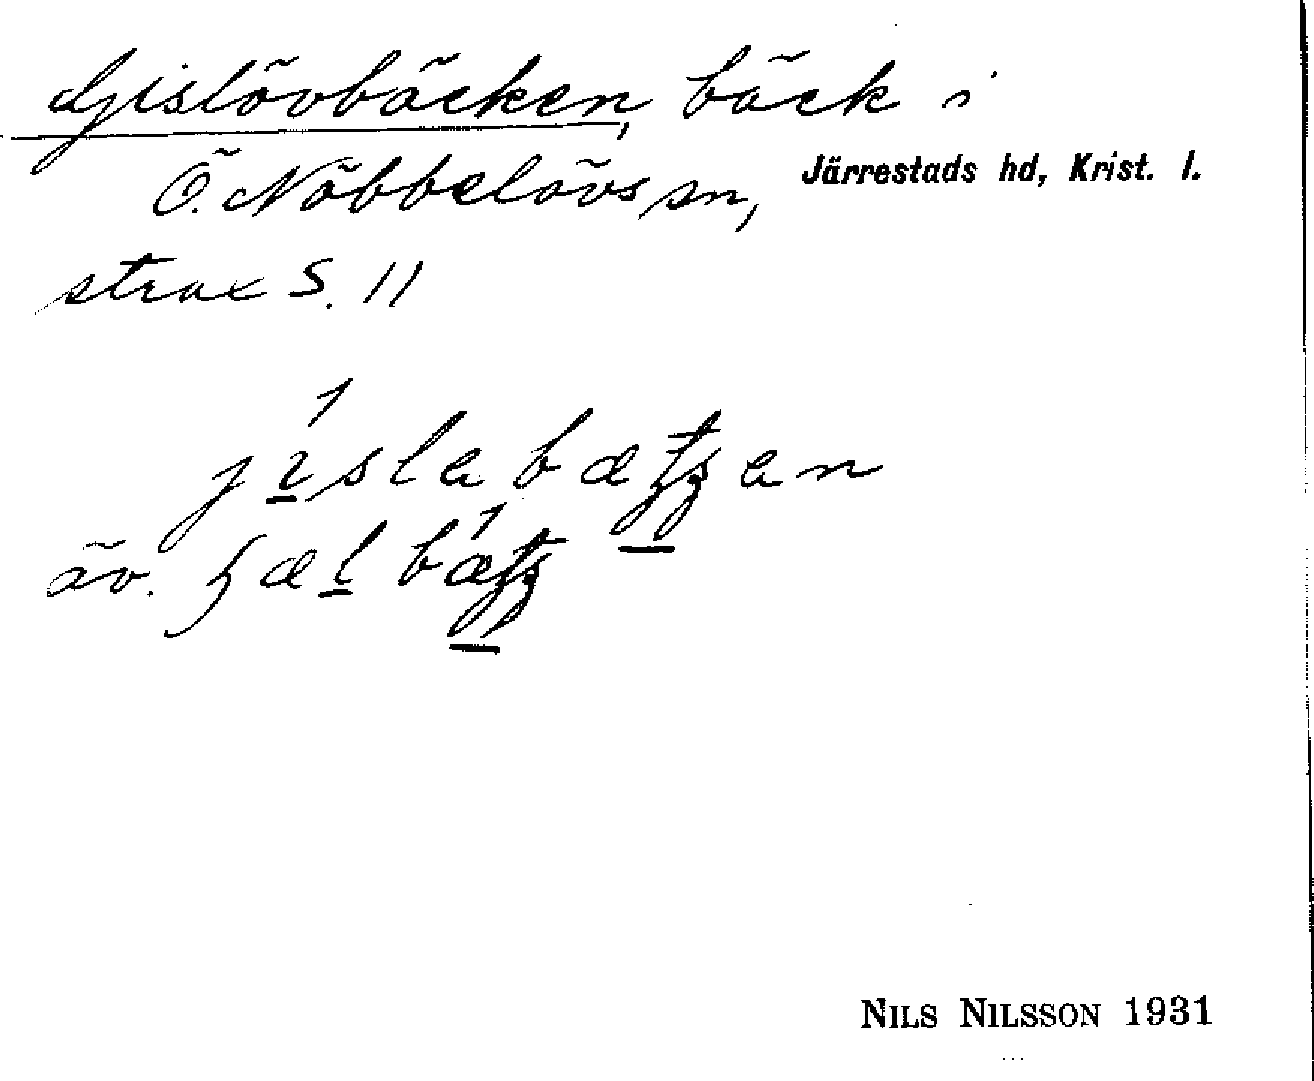 Gislövbäcken, bäck i
Ö. Nöbbelövs sn, Järrestads hd, Krist. l.
strax S. 11
äv.
NILS NILSSON 1931